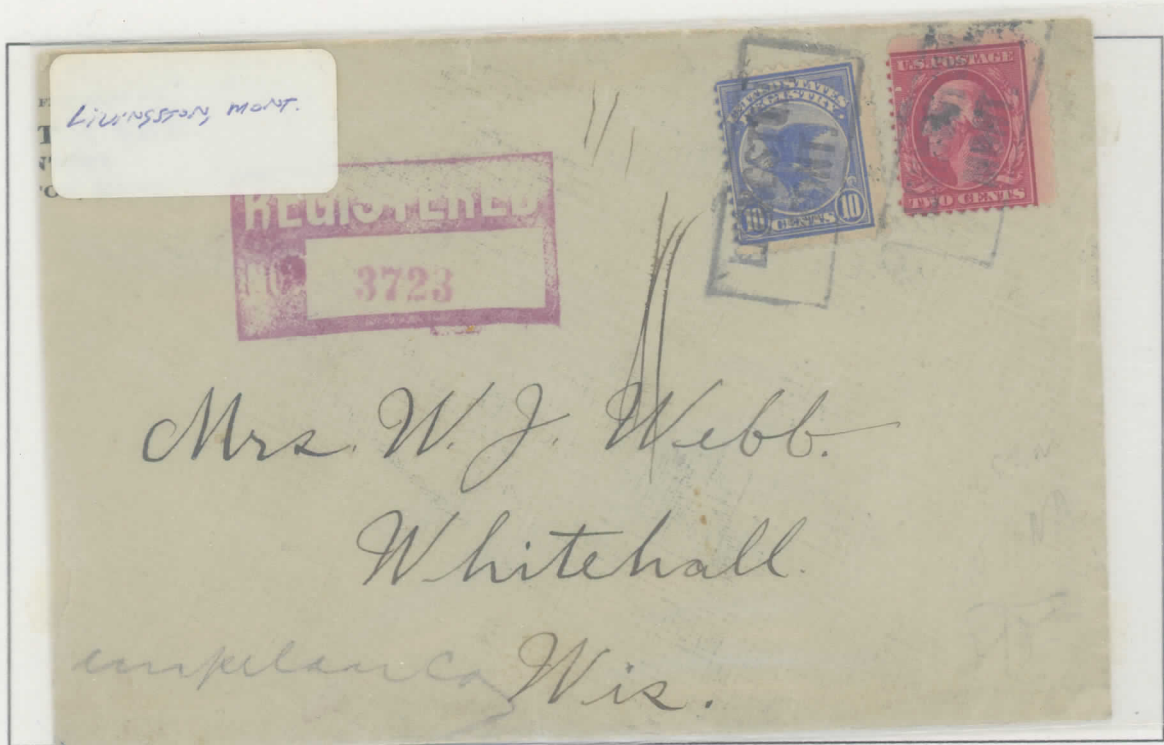 Livingston, Mont.
REGISTERED
NO.
3723
UNITED STATES
REGISTRY
10 CENTS 10
U.S. POSTAGE
TWO CENTS
Mrs. W. J. Webb.
Whitehall.
Wis.